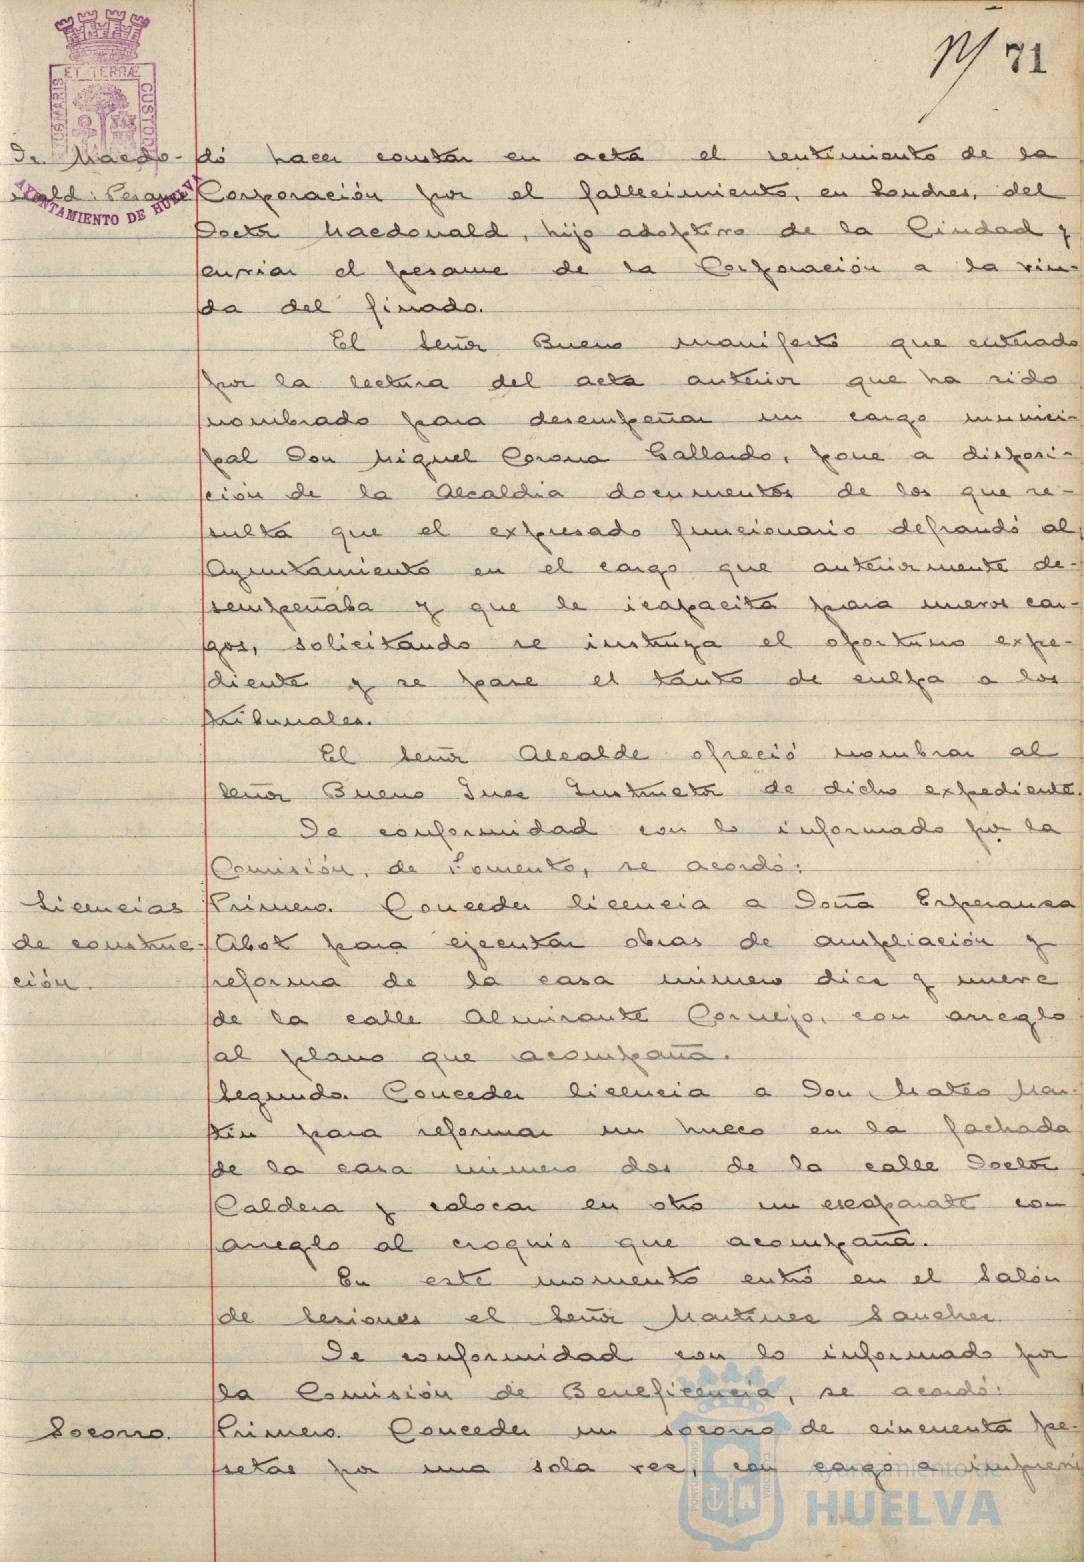 71
Dr. Macdo- dó hacer constar en acta el sentimiento de la
nald: Pesame Corporación por el fallecimiento, en Londres, del
Doctor Macdonald, hijo adoptivo de la Ciudad y
enviar el pesame de la Corporación a la viu-
da del finado.
El Señor Bueno manifestó que enterado
por la lectura del acta anterior que ha sido
nombrado para desempeñar un cargo munici-
pal Don Miguel Corona Gallardo, pone a disposi-
ción de la Alcaldia documentos de los que re-
sulta que el expresado funcionario defraudó al
Ayuntamiento en el cargo que anteriormente de-
sempeñaba y que le icapacita para nuevos car-
gos, solicitando se instruya el oportuno expe-
diente y se pase el tanto de culpa a los
tribunales.
El Señor Alcalde ofreció nombrar al
Señor Bueno Juez Instructor de dicho expediente.
De conformidad con lo informado por la
Comisión, de Fomento, se acordó:
Licencias Primero. Conceder licencia a Doña Esperanza
de construc- Abot para ejecutar obras de ampliación y
ción. reforma de la casa número diez y nueve
de la calle Almirante Cornejo, con arreglo
al plano que acompaña.
Segundo. Conceder licencia a Don Mateo Mar-
tin para reformar un hueco en la fachada
de la casa número dos de la calle Doctor
Caldera y colocar en otro un escaparate con
arreglo al croquis que acompaña.
En este momento entró en el Salón
de Sesiones el Señor Martinez Sanchez.
De conformidad con lo informado por
la Comisión de Beneficencia, se acordó:
Socorro. Primero. Conceder un socorro de cincuenta pe-
setas por una sola vez, con cargo a imprevi
ET TERRÆ
CUSTODIA
AYUNTAMIENTO DE HUELVA
Ayuntamiento de
HUELVA